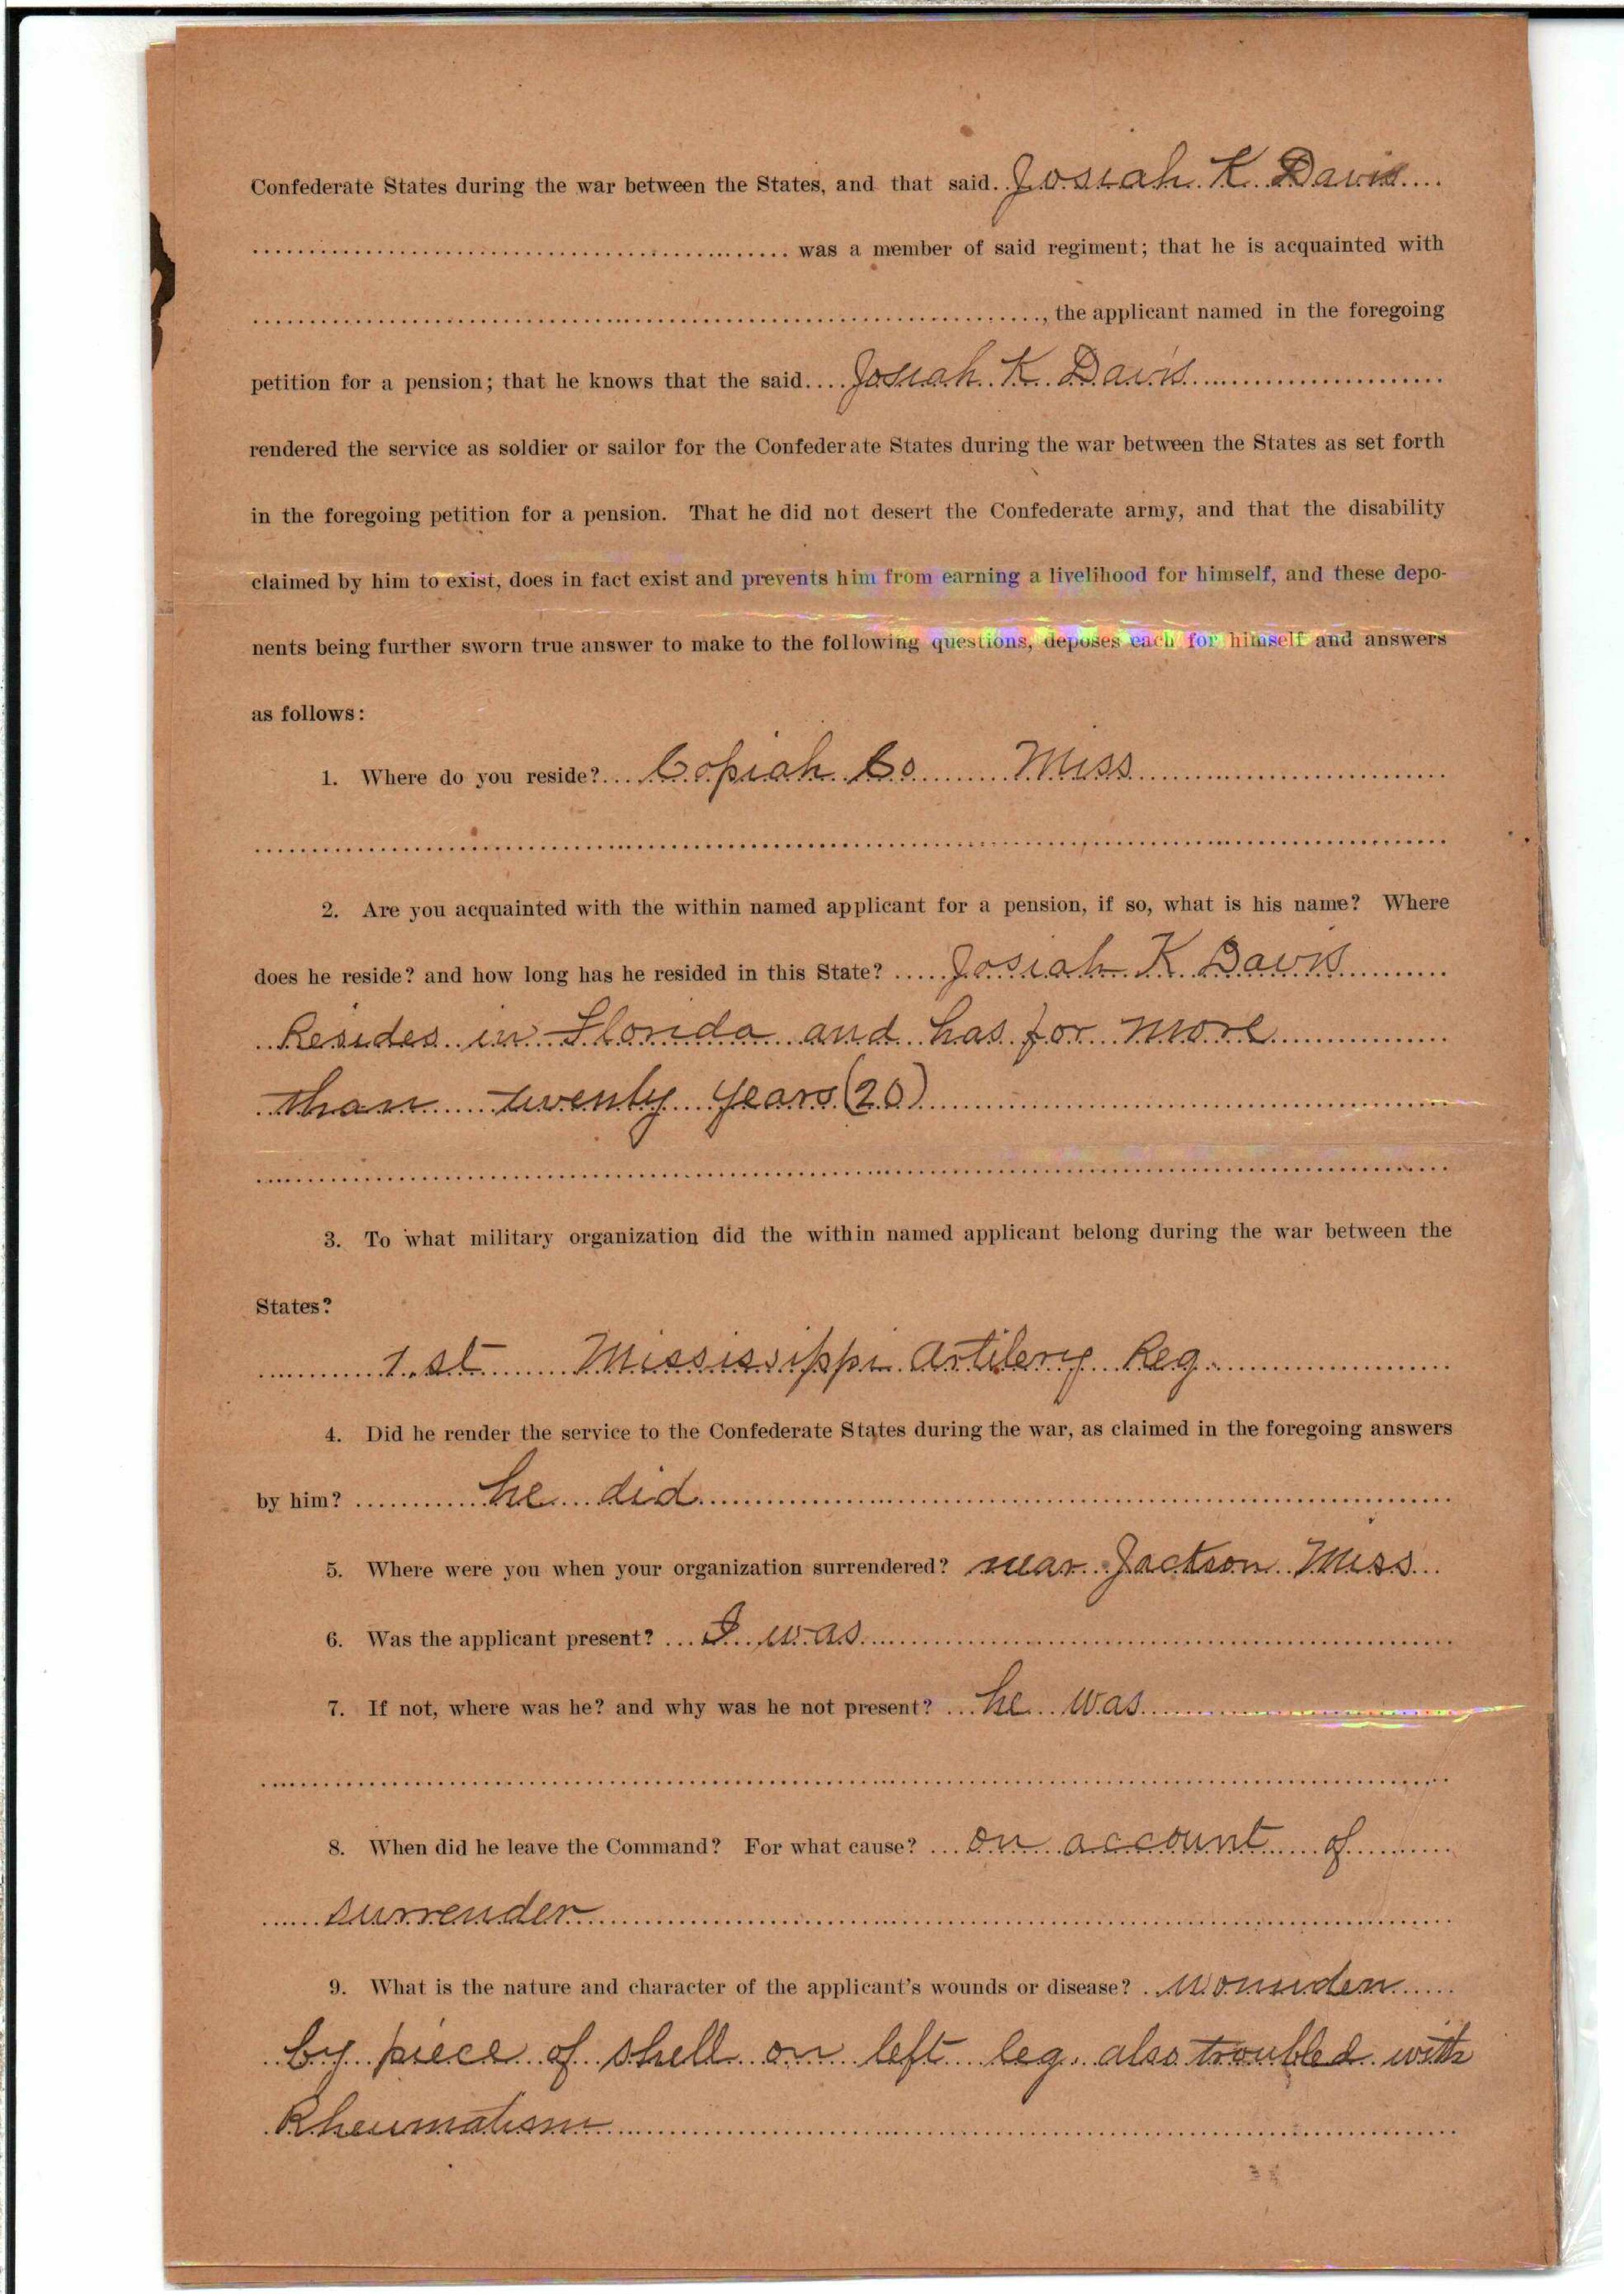 Confederate States during the war between the States, and that said Josiah K. Davis
was a member of said regiment; that he is acquainted with
, the applicant named in the foregoing
petition for a pension; that he knows that the said Josiah K. Davis
rendered the service as soldier or sailor for the Confederate States during the war between the States as set forth
in the foregoing petition for a pension. That he did not desert the Confederate army, and that the disability
claimed by him to exist, does in fact exist and prevents him from earning a livelihood for himself, and these depo-
nents being further sworn true answer to make to the following questions, deposes each for himself and answers
as follows:
1. Where do you reside? Copiah Co Miss
2. Are you acquainted with the within named applicant for a pension, if so, what is his name? Where
does he reside? and how long has he resided in this State? Josiah K. Davis
Resides in Florida and has for more
than twenty years (20)
3. To what military organization did the within named applicant belong during the war between the
States?
1st Mississippi Artilery Reg.
4. Did he render the service to the Confederate States during the war, as claimed in the foregoing answers
by him? he did
5. Where were you when your organization surrendered? near Jackson Miss
6. Was the applicant present? I was
7. If not, where was he? and why was he not present? he was
8. When did he leave the Command? For what cause? on account of
surrender
9. What is the nature and character of the applicant's wounds or disease? Wounden
by piece of shell on left leg. also troubled with
Rheumatism